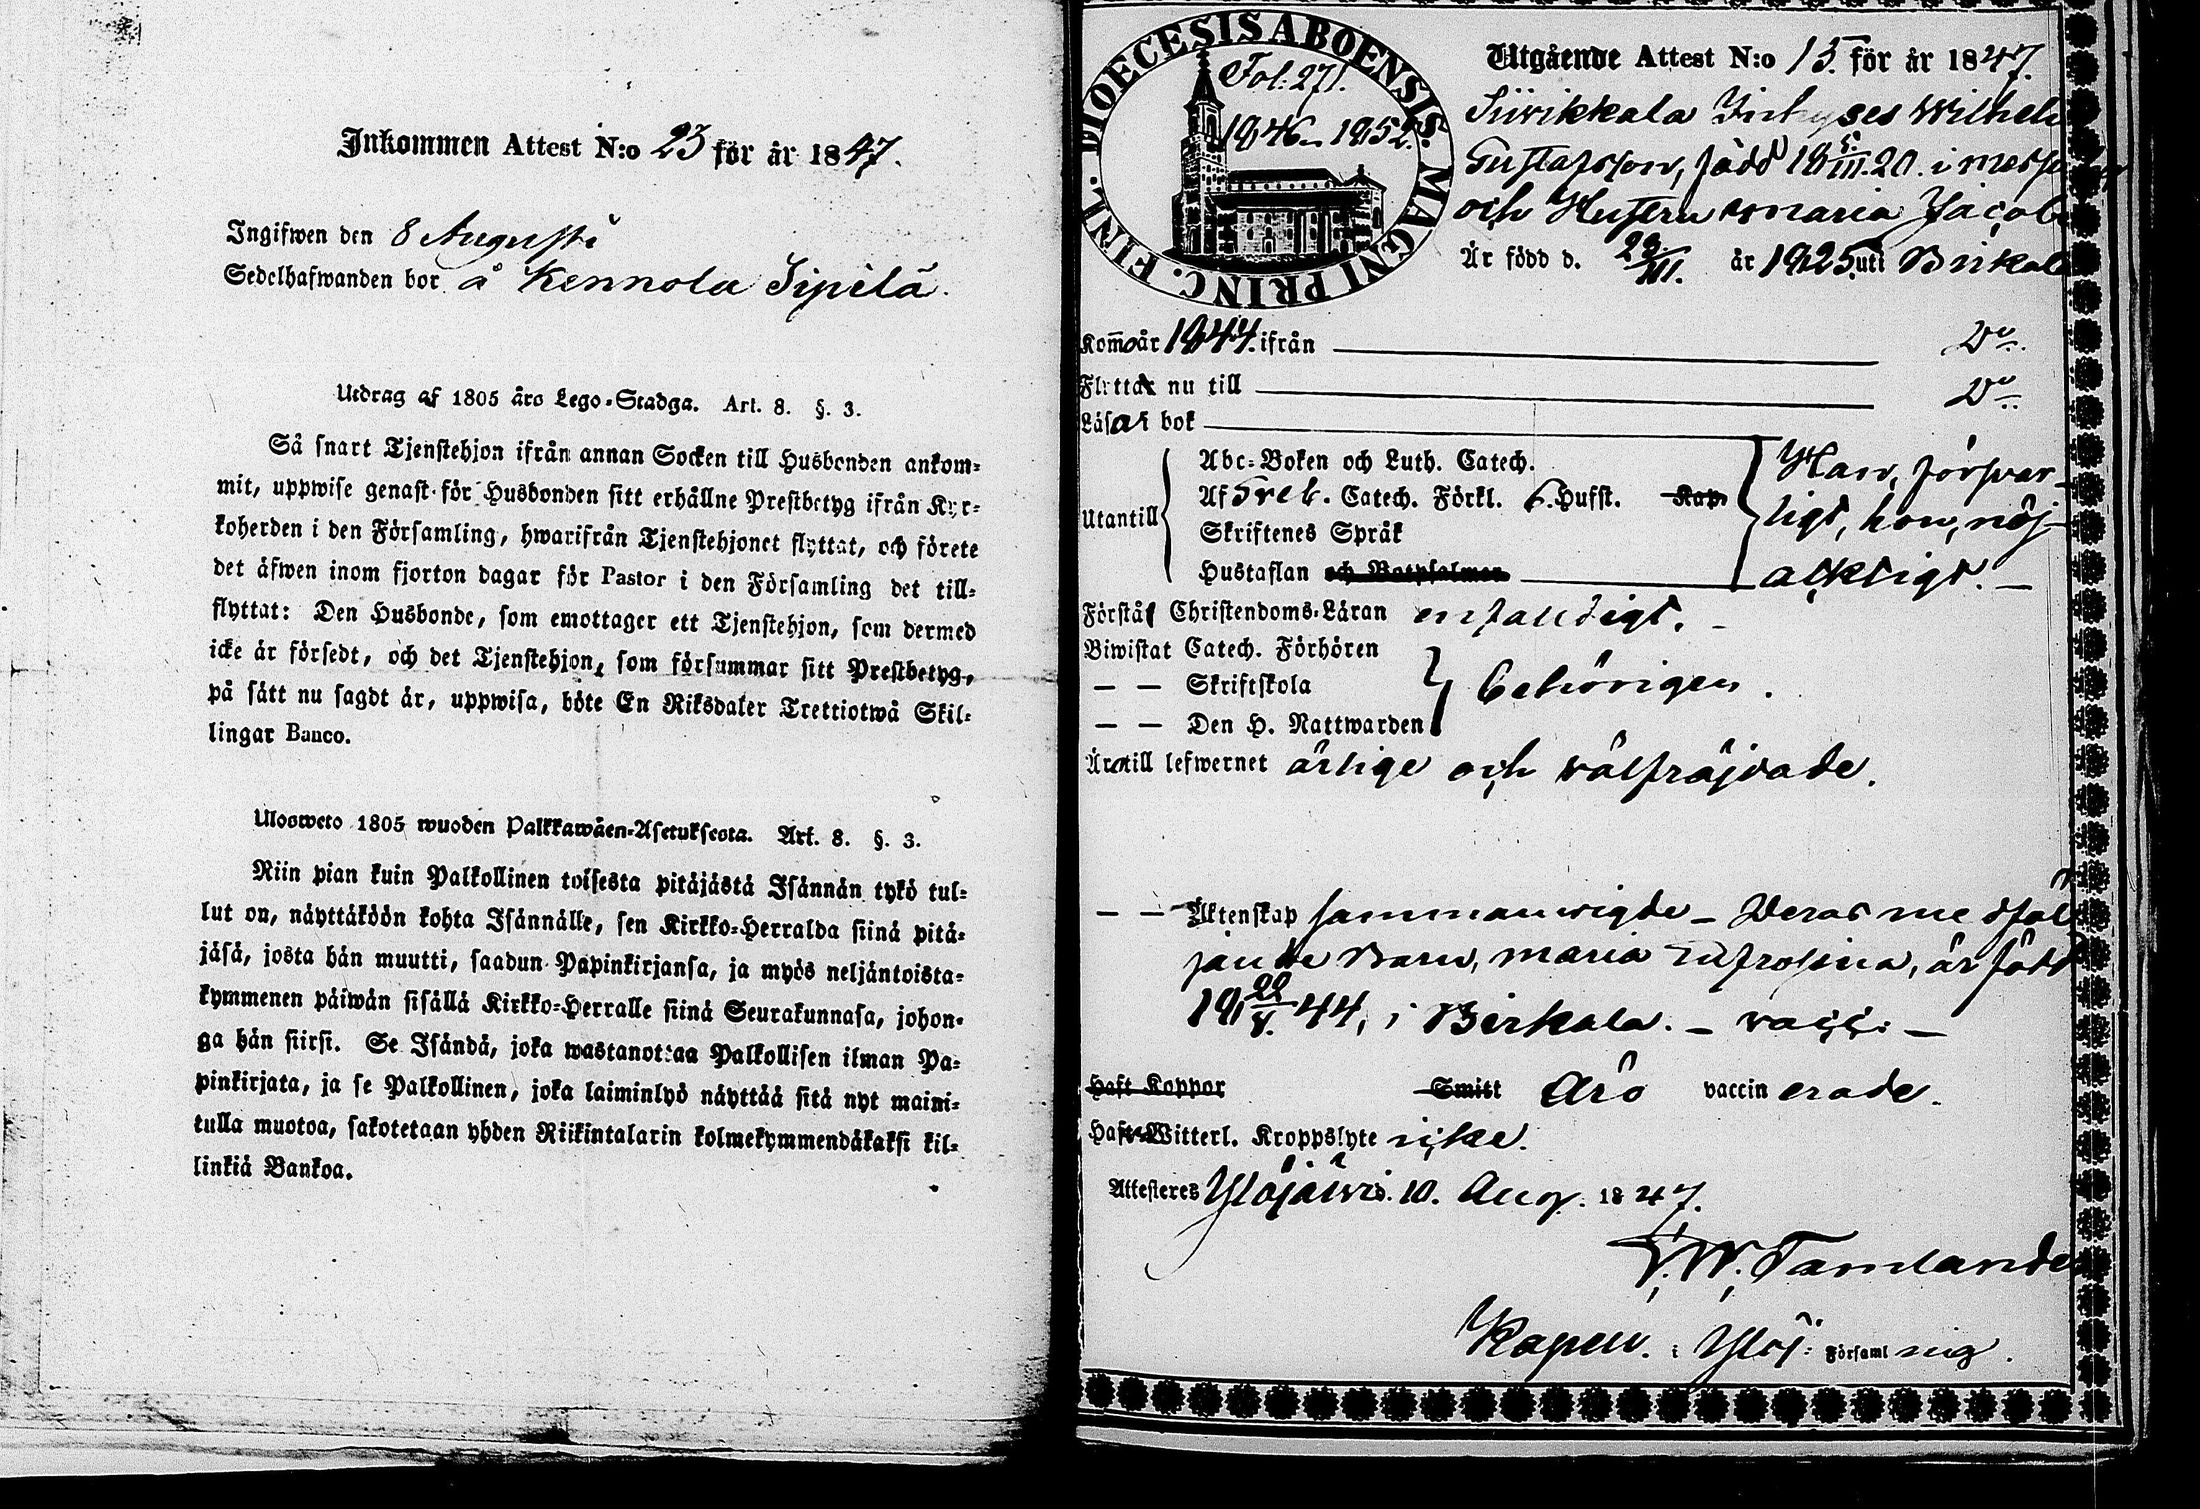 Inkommen Attest N:o 23 för år 1847.
Ingifwen den 8 Augusti
Sedelhafwanden bor å Kennola Sipilä.
Utdrag af 1805 års Lego-Stadga. Art. 8. §. 3.
Så snart Tjenstehjon ifrån annan Socken till Husbonden ankom-
mit, uppwise genast för Husbonden sitt erhållne Prestbetyg ifrån Kyr-
koherden i den Församling, hwarifrån Tjenstehjonet flyttat, och förete
det äfwen inom fjorton dagar för Pastor i den Församling det till-
flyttat: Den Husbonde, som emottager ett Tjenstehjon, som dermed
icke är försedt, och det Tjenstehjon, som försummar sitt Prestbetyg,
på sätt nu sagdt är, uppwisa, böte En Riksdaler Trettiotwå Skil-
lingar Banco.
Ulosweto 1805 wuoden Palkkawäen-Asetuksesta. Art. 8. §. 3.
Niin pian kuin Palkollinen toisesta pitäjästä Isännän tykö tul-
lut on, näyttäköön kohta Isännälle, sen Kirkko-Herralda siinä pitä-
jäsä, josta hän muutti, saadun Papinkirjansa, ja myös neljäntoista-
kymmenen päiwän sisällä Kirkko-Herralle siinä Seurakunnasa, johon-
ga hän siirsi. Se Isändä, joka wastanottaa Palkollisen ilman Pa-
pinkirjata, ja se Palkollinen, joka laiminlyö näyttää sitä nyt maini-
tulla muotoa, sakotetaan yhden Riikintalarin kolmekymmendäkaksi kil-
linkiä Bankoa.
DIOECESIS ABOENSIS. MAGNI PRINC. FINL.
Fol. 271.
1846-1852.
Utgående Attest N:o 15. för år 1847.
Siivikkala Wilhelm
Gustafsson, född 18 5/III. 20. i
och Hustru Maria Jacobs
Är född d. 23/III. år 1825 uti Birkala
Kommo år 1844. ifrån Do.
Flyttar nu till Do.
Läsa i bok
Abc-Boken och Luth. Catech. Han, försvar-
Utantill Af Catech. Förkl. 6. Hufst. Kap. ligt, hon, nöj-
Skriftenes Språk
Hustaflan och Botpsalmen aktligt.
Förstå Christendoms-Läran enfaldigt.
Biwistat Catech. Förhören
— — Skriftskola behörigen.
— — Den H. Nattwarden
Äro till lefwernet ärlige och välfräjdade.
— — Äktenskap sammanwigde - Deras medföl-
jande Barn, Maria Eufrosina, är född
18 22/V. 44, i Birkala. - vacc: -
Haft Koppor Smitt äro vaccinerade.
Hafwa Witterl. Kroppslyte icke.
Attesteres Ylöjärvi d. 10. Aug. 1847.
Tamlander
Kapell. i Ylöj: Församlning.